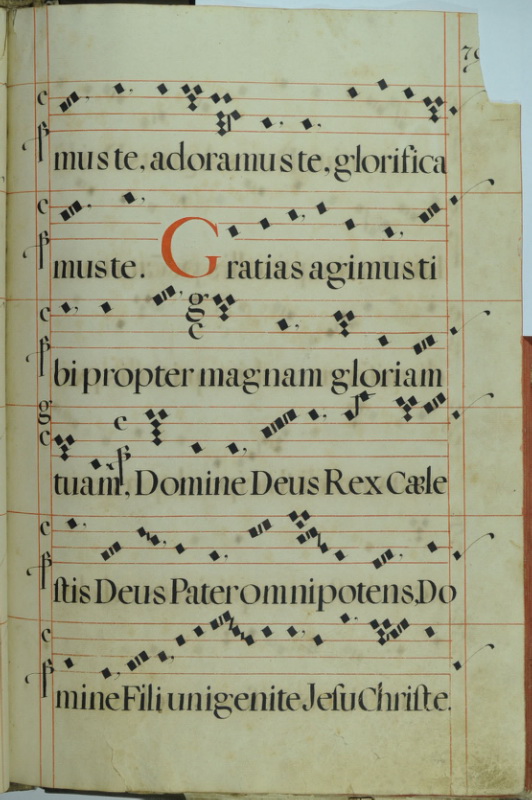 mus te, adoramus te, glorifica
mus te. Gratias agimus ti
bi propter magnam gloriam
tuam, Domine Deus Rex Cæle
ſtis Deus Pater omnipotens, Do
mine Fili unigenite Jeſu Chriſte.